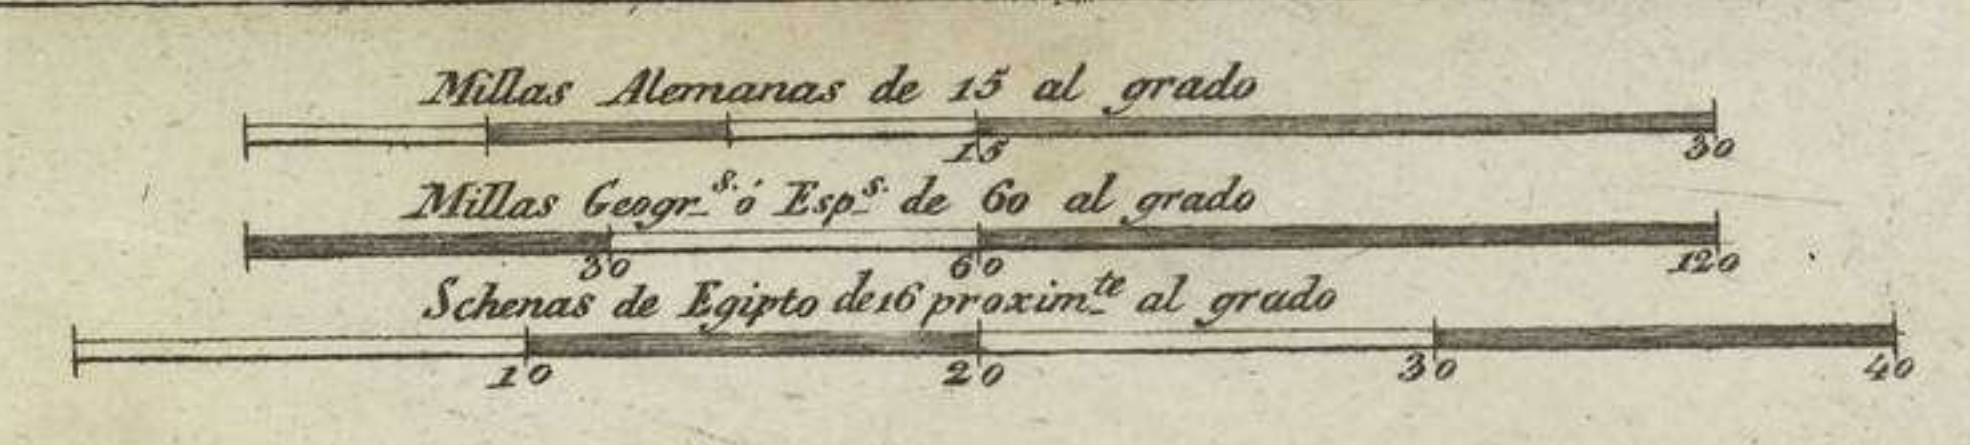 Millas Alemanas de 15 al grado
15 30
Millas Geogr.s. ó Esp.s. de 60 al grado
30 60 120
Schenas de Egipto de 16 proxim.te al grado
10 20 30 40